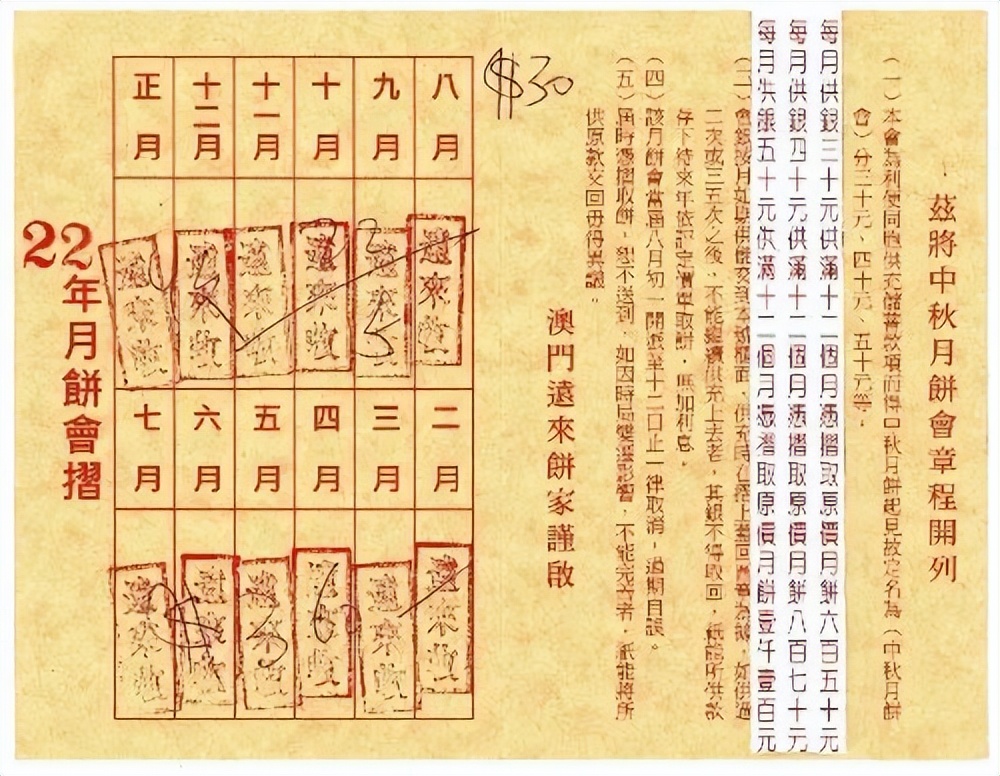 茲將中秋月餅會章程開列
(一)本會為利便同胞供充儲蓄款項而得中秋月餅起見故定名為(中秋月餅
會)分三十元、四十元、五十元等。
每月供銀三十元供滿十二個月憑摺取原價月餅六百五十元
每月供銀四十元供滿十二個月憑摺取原價月餅八百七十元
每月供銀五十元供滿十二個月憑摺取原價月餅壹仟壹百元
會銀按月如期供交到本號櫃面,供充時在摺上蓋回圖章為據,如供過
二次或三五次之後,不能繼續供充上去者,其銀不得取回,祇能所供款
停下待來年依評定價單取餅,無加利息。
(四)該月餅會當屆八月初一開派至十二日止一律取消,過期自誤。
(五)屆時憑摺取餅,恕不送到,如因時局變遷影響,不能完善者,祇能將所
供原款交回毋得異議。
澳門遠來餅家謹啟
$30
八月
九月
十月
十一月
十二月
正月
遠來收
遠來收
遠來收
遠來收
遠來收
遠來收
二月
三月
四月
五月
六月
七月
遠來收
遠來收
遠來收
遠來收
遠來收
遠來收
22年月餅會摺